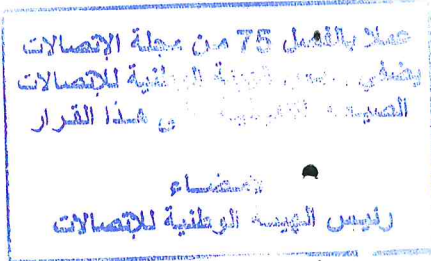 عملا بالفصل 75 من مجلة الإتصالات
يضفي الهيئة الوطنية للإتصالات
الصيغة في هذا القرار
الإمضاء
رئيس الهيئة الوطنية للإتصالات